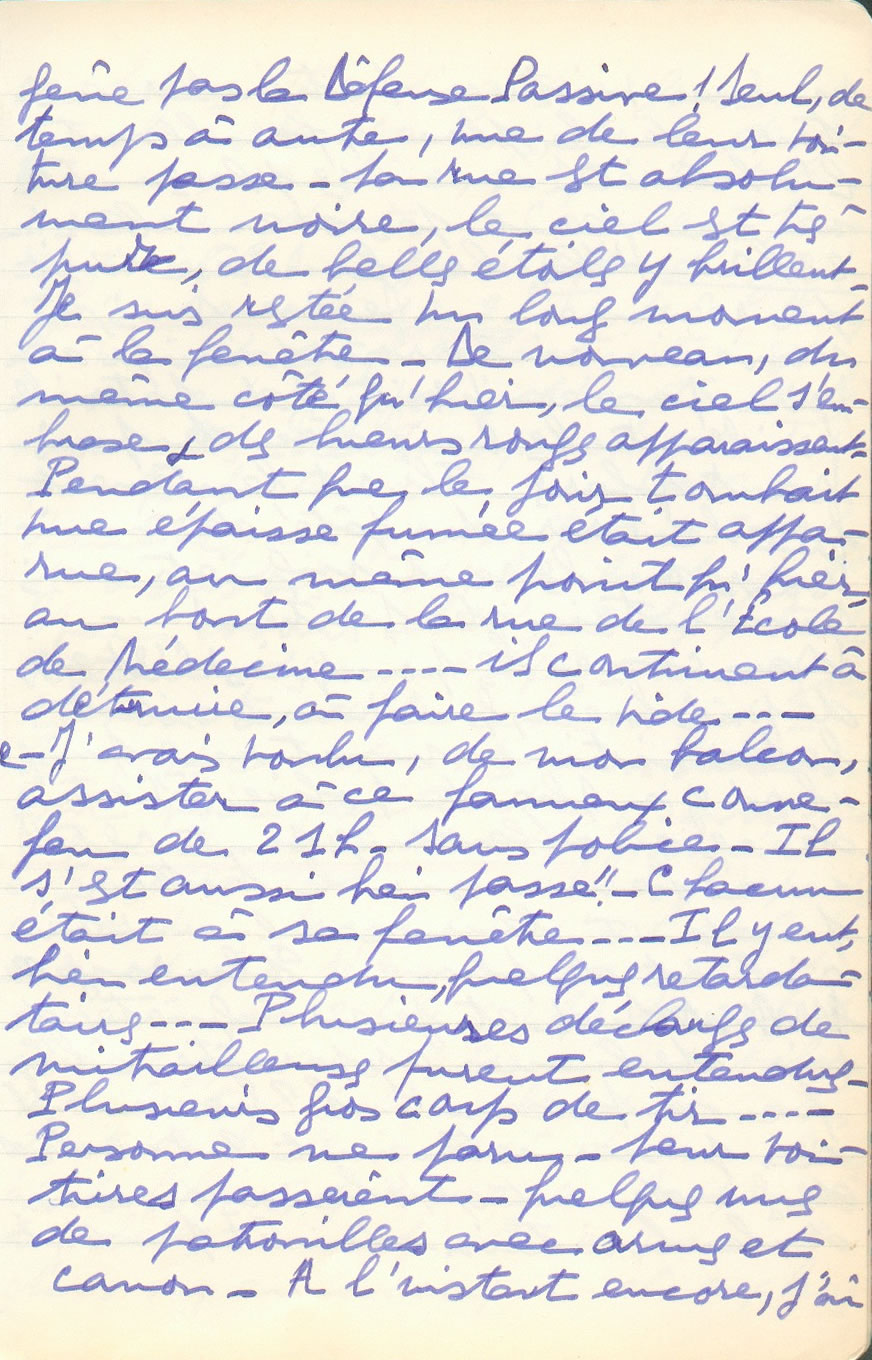 gêne pas la Défense Passive ! Seul, de
temps à autre, une de leur voi-
ture passe - La rue est absolu-
ment noire, le ciel est très
pur, de belles étoiles y brillent -
Je suis restée un long moment
à la fenêtre - De nouveau, du
même côté qu'hier, le ciel s'em-
brase, des lueurs rouges apparaissent -
Pendant que le jour tombait
une épaisse fumée était appa-
rue, au même point qu'hier,
au bout de la rue de l'École
de Médecine ---- ils continuent à
détruire, à faire le vide ---
- J'avais voulu, de mon balcon,
assister à ce fameux couvre-
feu de 21h - sans police - Il
s'est aussi bien passé !! - Chacun
était à sa fenêtre --- Il y eut,
bien entendu, quelques retarda-
taires --- Plusieures décharges de
mitrailleuses furent entendues -
Plusieurs gros coups de tir ----
Personne ne parut - Leur voi-
tures passèrent - quelques unes
de patrouilles avec armes et
canon - A l'instant encore, j'ai